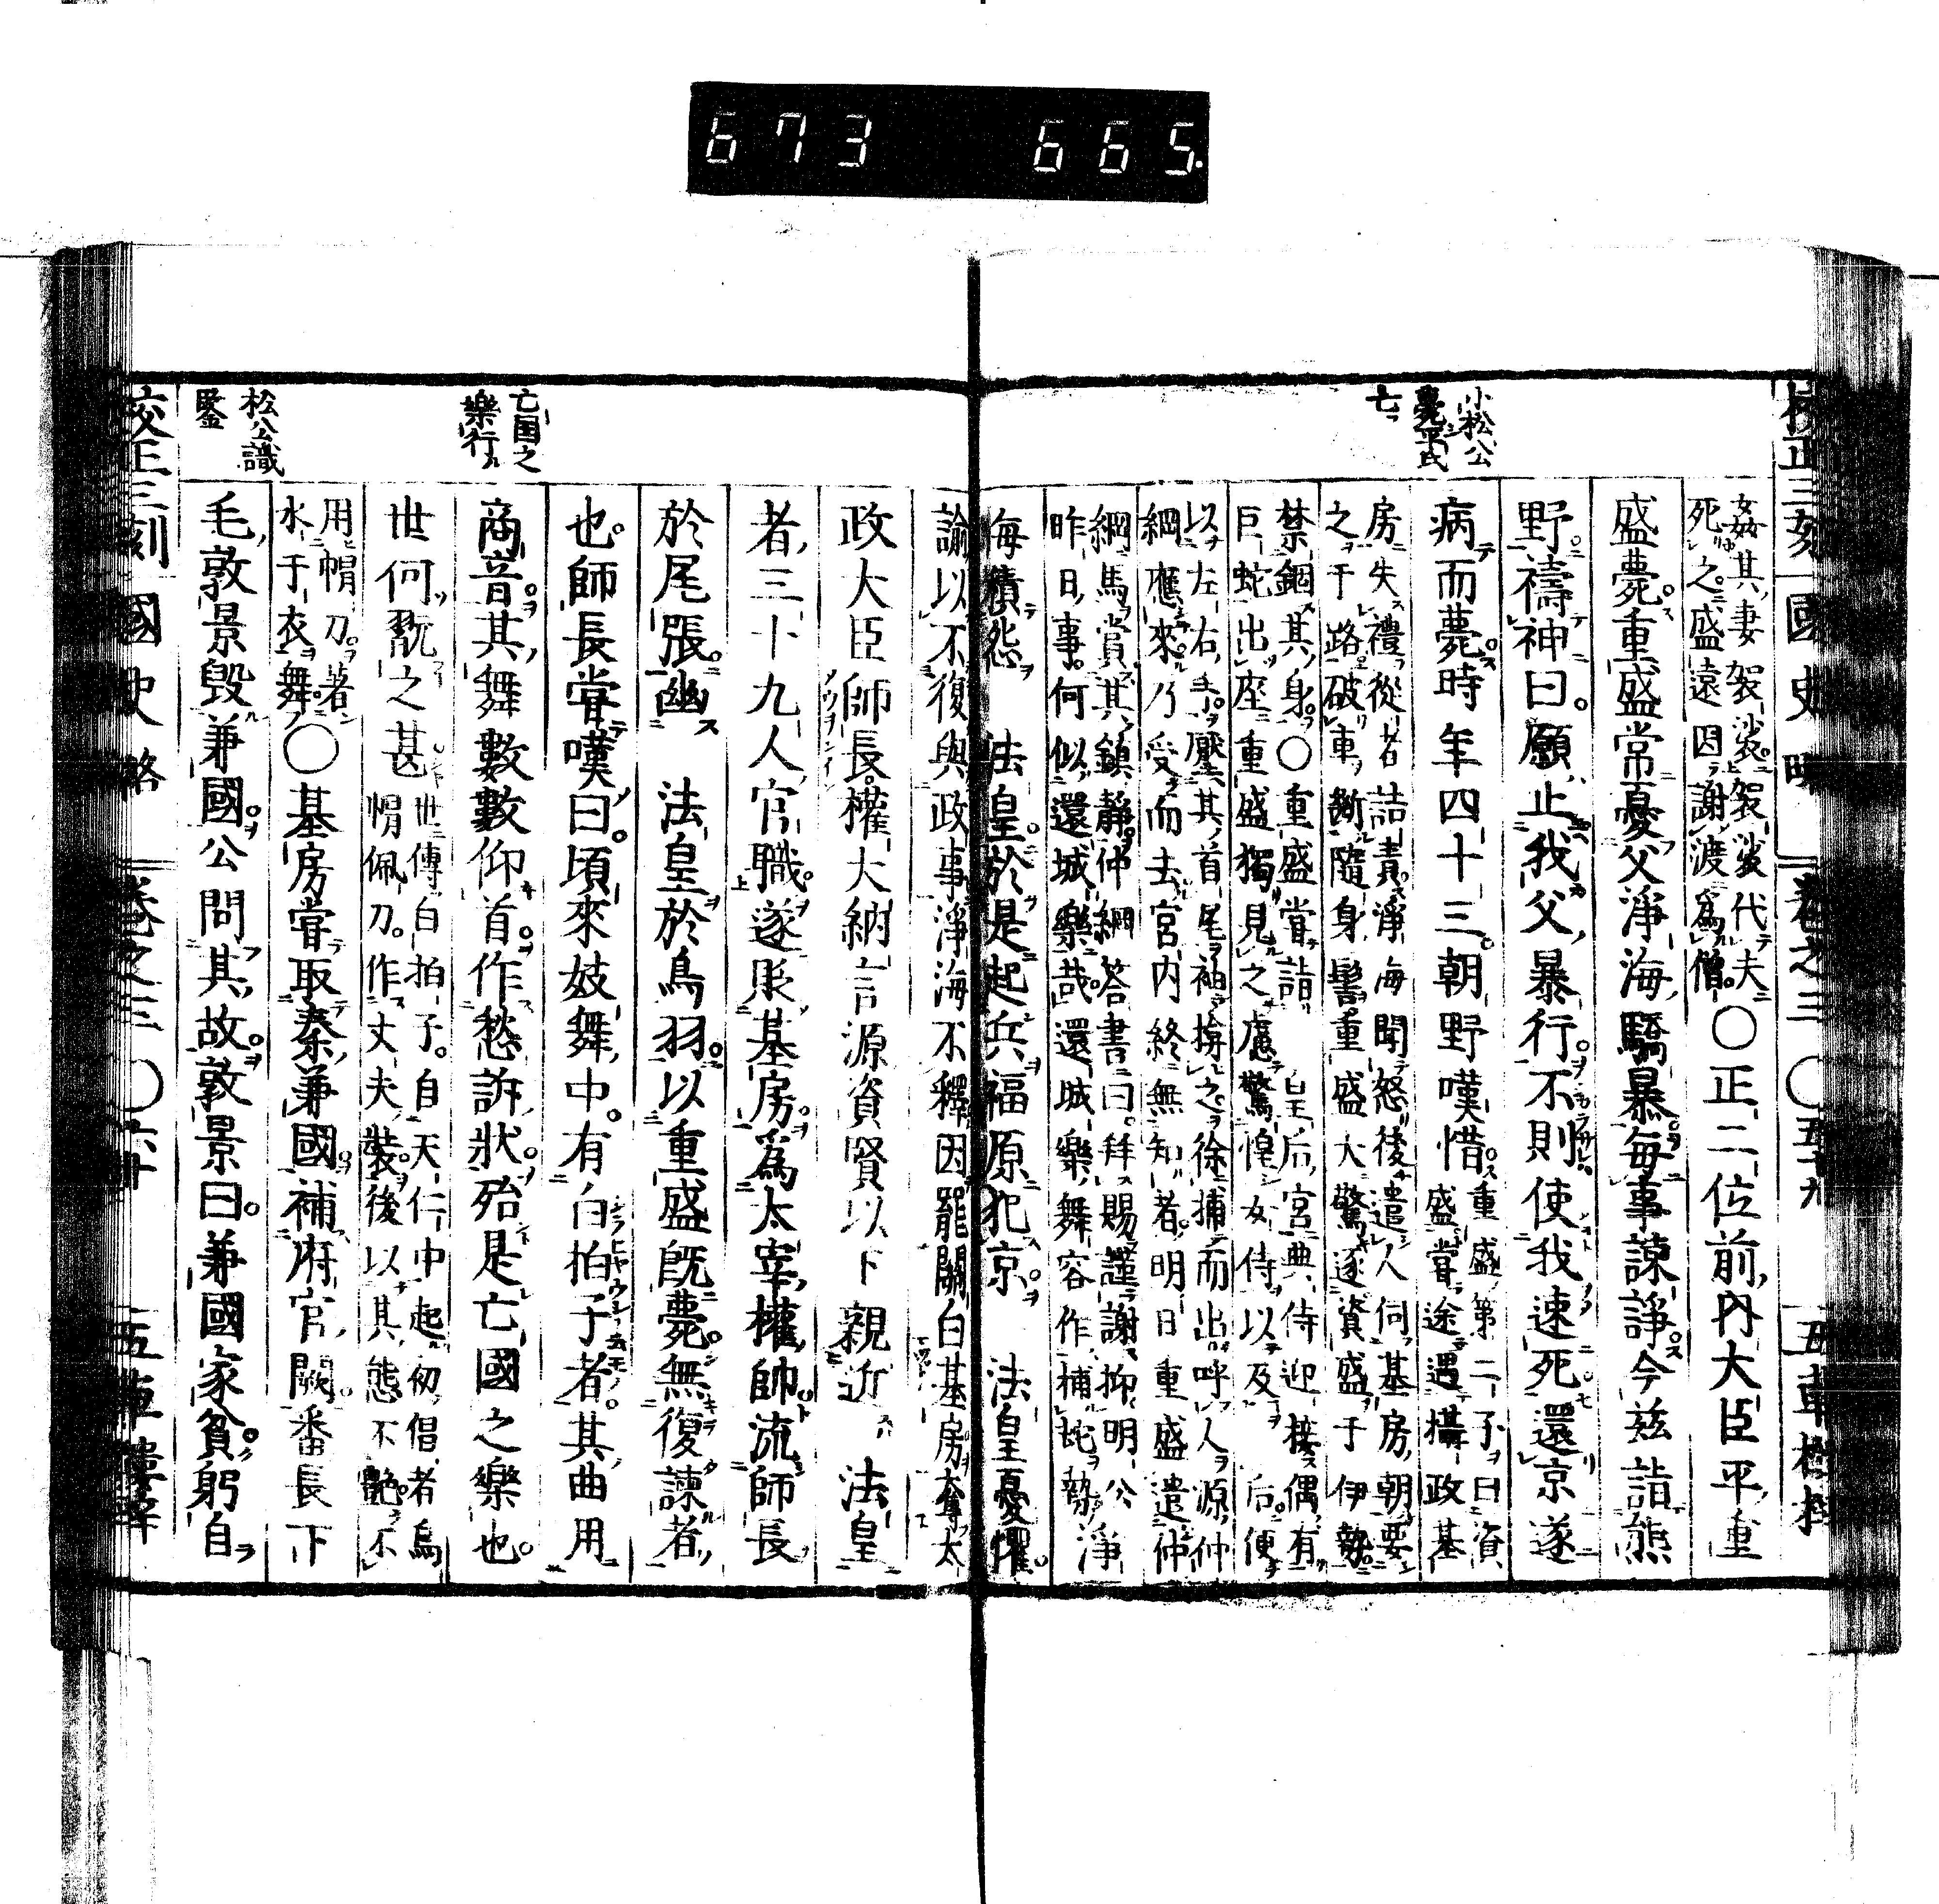 673 665
校正三刻國史略 卷之三 〇五十九 五車樓梓
小松公
薨平氏
亡
姦其妻袈裟袈裟代夫
死之盛遠因謝渡爲僧〇正二位前内大臣平重
盛薨重盛常憂父淨海驕暴每事諫諍今茲詣熊
野禱神曰願止我父暴行不則使我速死還京遂
病而薨時年四十三朝野嘆惜重盛第二子曰資
盛嘗途遇攝政基
房失禮從者詰責淨海聞怒後遣人伺基房朝要
之于路破車斷隨身髻重盛大驚逐資盛于伊勢
禁錮其身〇重盛嘗詣 皇后宮典侍迎接偶有
巨蛇出座重盛獨見之慮驚惶女侍以及 后便
以左右手壓其首尾袖揜之徐捕而出呼人源仲
綱應來乃受而去宮内終無知者明日重盛遣仲
綱馬賞其鎮靜仲綱答書曰拜賜謹謝抑明公
昨日事何似還城樂哉還城樂舞容作捕蛇勢淨
海積怨 法皇於是起兵福原犯京 法皇憂懼
諭以不復與政事淨海不釋因罷關白基房奪太
政大臣師長權大納言源資賢以下親近 法皇
者三十九人官職遂貶基房爲太宰權帥流師長
於尾張幽 法皇於鳥羽以重盛既薨無復諫者
也師長嘗嘆曰頃來妓舞中有白拍子者其曲用
商音其舞數數仰首作愁訴狀殆是亡國之樂也
世何翫之甚世傳白拍子自天仁中起初倡者烏
帽佩刀作丈夫裝後以其態不艷不
用帽刀著
水干衣舞〇基房嘗取秦兼國補府官厥番長下
毛敦景毀兼國公問其故敦景曰兼國家貧躬自
亡国之
樂行
松公識
鑒
校正三刻國史略 卷之三 〇六十 五車樓梓